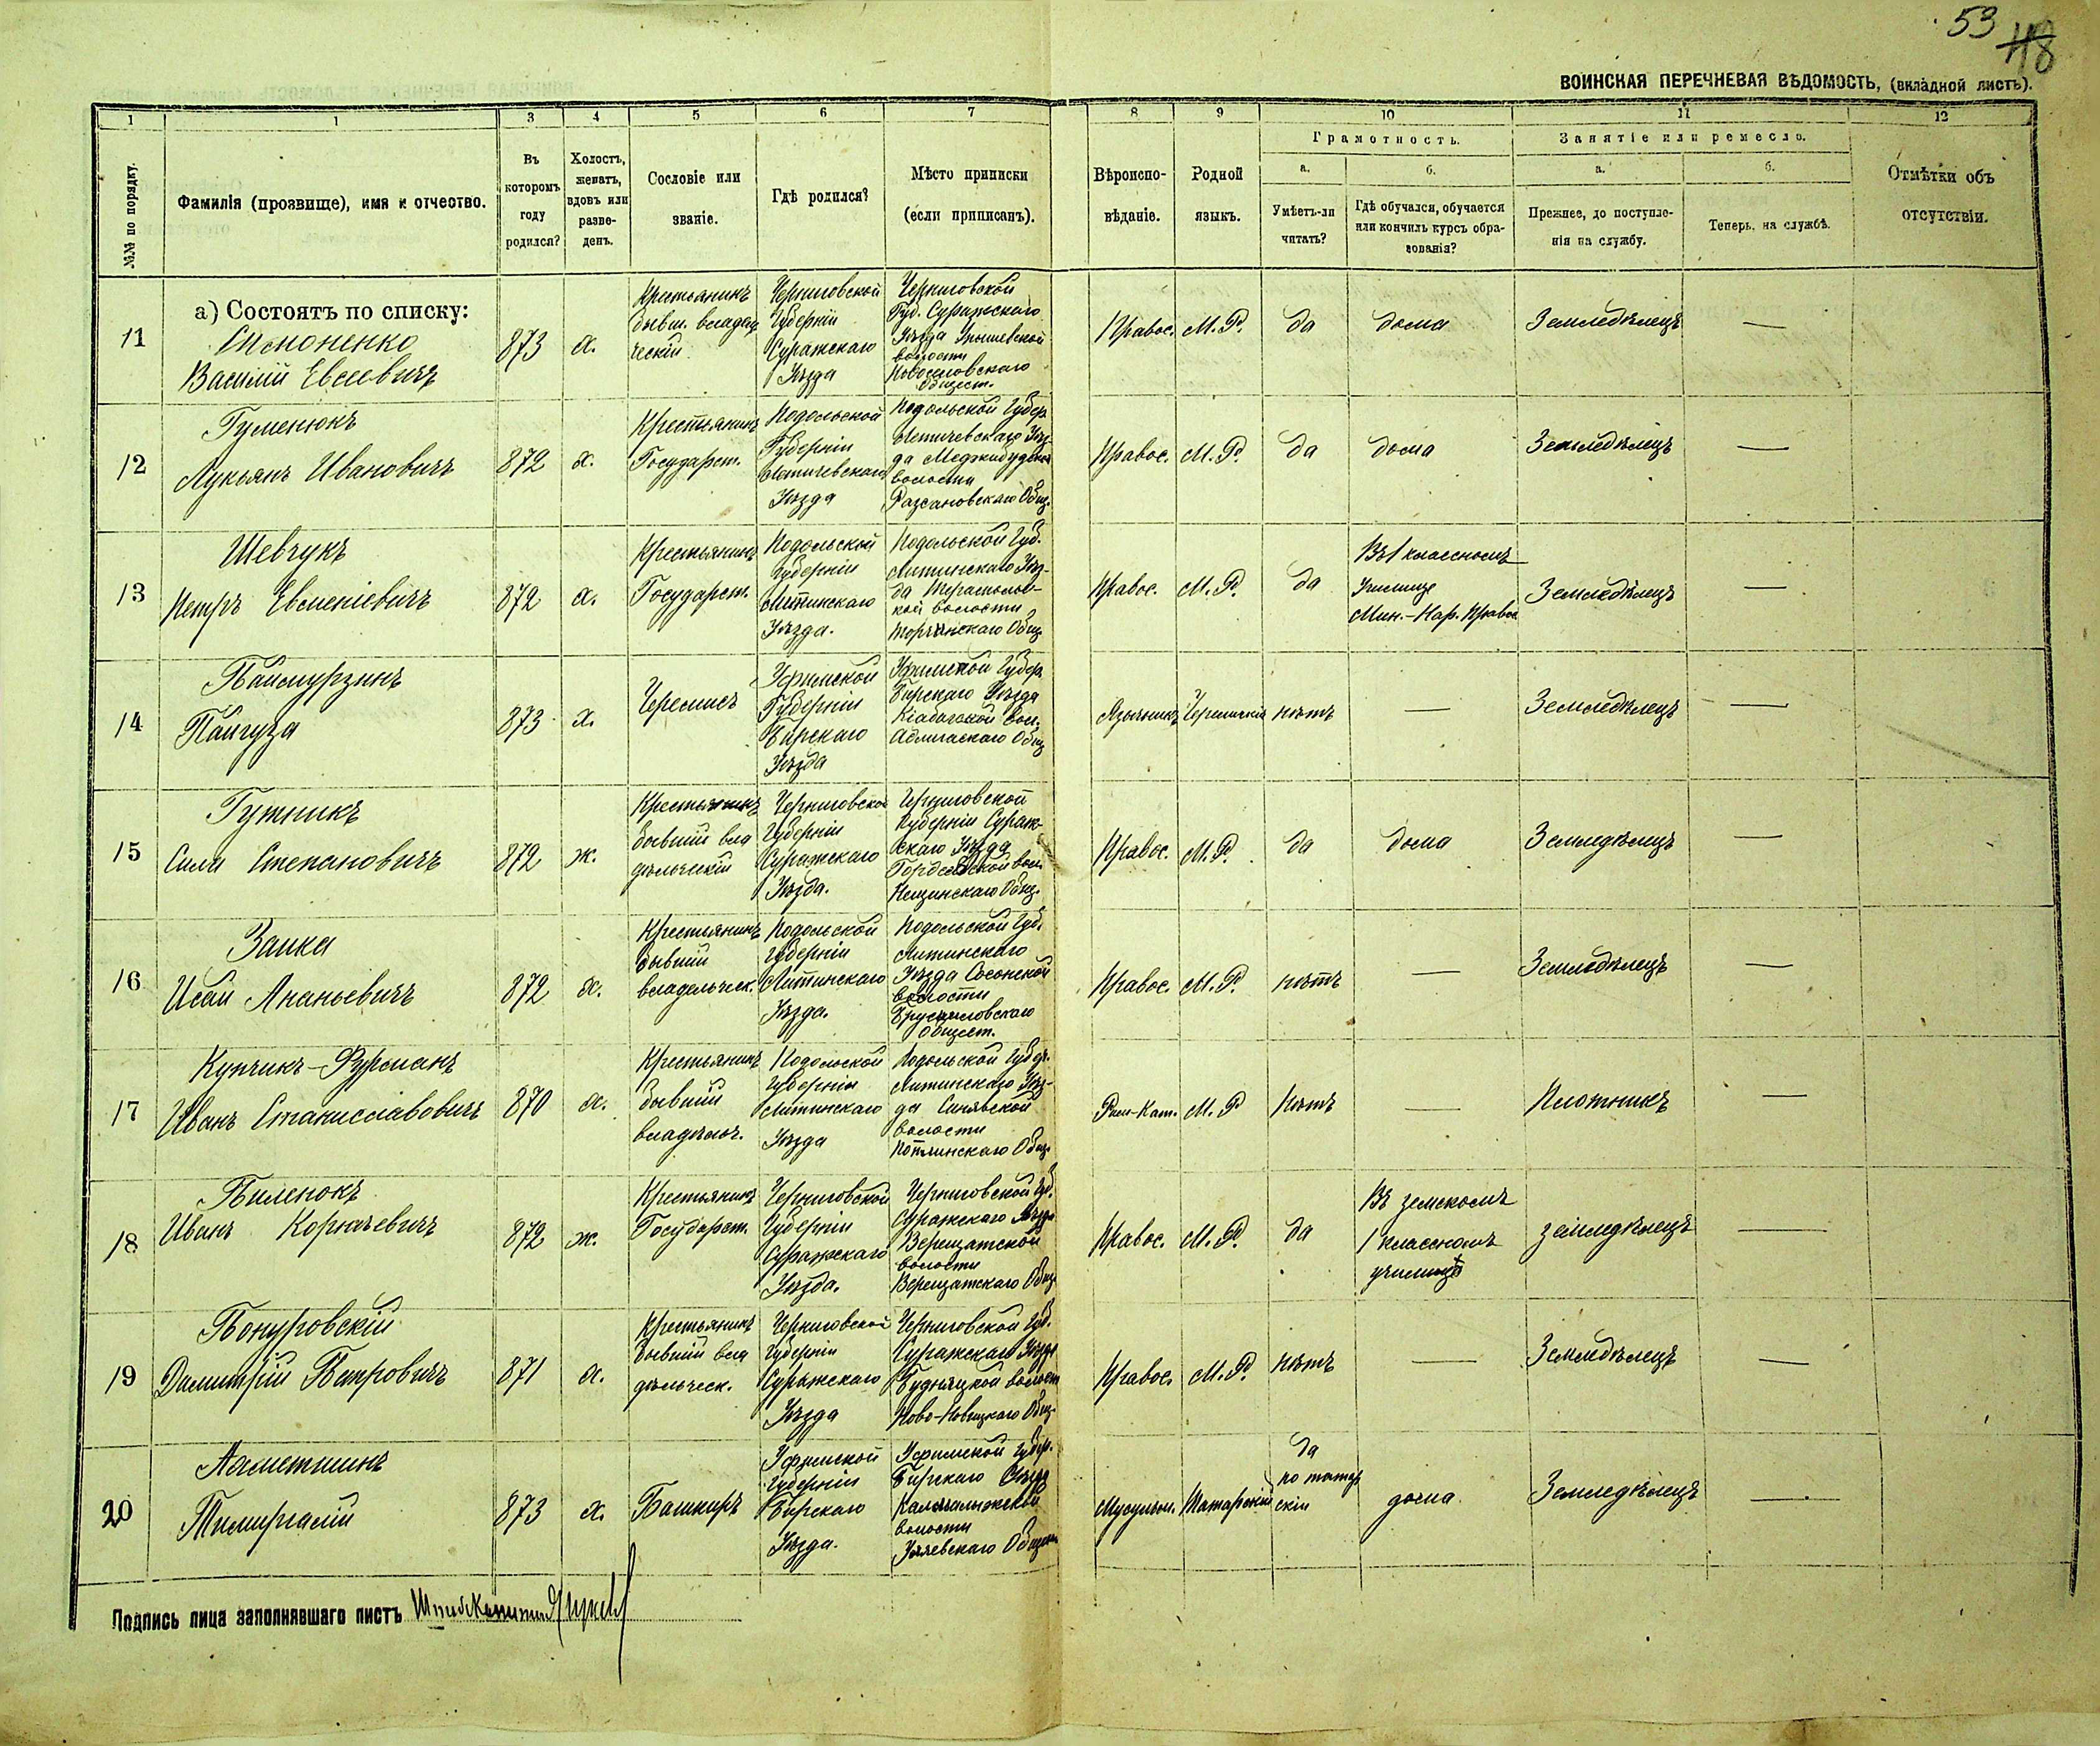 53
118
ВОИНСКАЯ ПЕРЕЧНЕВАЯ ВѢДОМОСТЬ, (вкладной листъ).
1 1 3 4 5 6 7 8 9 10 11 12
№№ по порядку.
Фамилія (прозвище), имя и отчество.
Въ которомъ году родился?
Холостъ, женатъ, вдовъ или разведенъ.
Сословіе или званіе.
Гдѣ родился?
Мѣсто приписки (если приписанъ).
Вѣроисповѣданіе.
Родной языкъ.
Грамотность.
а.
Умѣетъ-ли читать?
б.
Гдѣ обучался, обучается или кончилъ курсъ образованія?
Занятіе или ремесло.
а.
Прежнее, до поступленія на службу.
б.
Теперь, на службѣ.
Отмѣтки объ отсутствіи.
а) Состоятъ по списку:
11
Симоненко
Василій Евсеевичъ
873
х.
Крестьянинъ
бывш. владель
ческій
Черниговской
Губерніи
Суражскаго
Уѣзда
Черниговской
Губ. Суражскаго
Уѣзда
волости
Новоселовскаго
Общест.
Правос.
М. Р.
да
дома
Земледѣлецъ
—
12
Гуменюкъ
Лукьянъ Ивановичъ
872
х.
Крестьянинъ
Государст.
Подольской
Губерніи
Летичевскаго
Уѣзда
Подольской Губер.
Летичевскаго Уѣз-
да
волости
Общ.
Правос.
М. Р.
да
дома
Земледѣлецъ
—
13
Шевчукъ
Петръ Евменіевичъ
872
х.
Крестьянинъ
Государст.
Подольской
Губерніи
Литинскаго
Уѣзда.
Подольской Губ.
Литинскаго Уѣз-
да
кой волости
Общ.
Правос.
М. Р.
да
Въ 1 классномъ
Училище
Мин.-Нар. Правос.
Земледѣлецъ
—
14
Баймурзинъ
Байгуза
873
х.
Черемисъ
Уфимской
Губерніи
Бирскаго
Уѣзда
Уфимской Губер.
Бирскаго Уѣзда
вол.
Общ.
Язычникъ
Черемискій
нѣтъ
—
Земледѣлецъ
—
15
Гутникъ
Сила Степановичъ
872
ж.
Крестьянинъ
бывшій вла
дѣльческій
Черниговской
Губерніи
Суражскаго
Уѣзда.
Черниговской
Губерніи Сураж-
скаго Уѣзда
Гордеевской вол.
Общ.
Правос.
М. Р.
да
дома
Земледѣлецъ
—
16
Заика
Исай Ананьевичъ
872
х.
Крестьянинъ
бывшій
владельческ.
Подольской
Губерніи
Литинскаго
Уѣзда.
Подольской Губ.
Литинскаго
Уѣзда Сосонской
волости
Брусиловскаго
Общест.
Правос.
М. Р.
нѣтъ
—
Земледѣлецъ
—
17
Купчикъ-Фурманъ
Иванъ Станиславовичъ
870
х.
Крестьянинъ
бывшій
владѣльч.
Подольской
Губерніи
Литинскаго
Уѣзда
Подольской Губер.
Литинскаго Уѣз-
да Синявской
волости
Общ.
Рим-Кат.
М. Р.
Нѣтъ
—
Плотникъ
—
18
Биленокъ
Иванъ Корнѣевичъ
872
ж.
Крестьянинъ
Государст.
Черниговской
Губерніи
Суражскаго
Уѣзда.
Черниговской Губ.
Суражскаго Уѣзда
Верещатской
волости
Верещатскаго Общ.
Правос.
М. Р.
да
Въ земскомъ
1 классномъ
училищѣ
земледѣлецъ
—
19
Бонуровскій
Дмитрій Петровичъ
871
х.
Крестьянинъ
бывшій вла
дѣльческ.
Черниговской
Губерніи
Суражскаго
Уѣзда
Черниговской Губ.
Суражскаго Уѣзда
волости
Общ.
Правос.
М. Р.
нѣтъ
—
Земледѣлецъ
—
20
Ахметшинъ
Тимиргалій
873
х.
Башкиръ
Уфимской
Губерніи
Бирскаго
Уѣзда.
Уфимской Губер.
Бирскаго Уѣзда
волости
Общест.
Мусульм.
Татарскій
да
по татар
скій
дома
Земледѣлецъ
—
Подпись лица заполнявшаго листъ